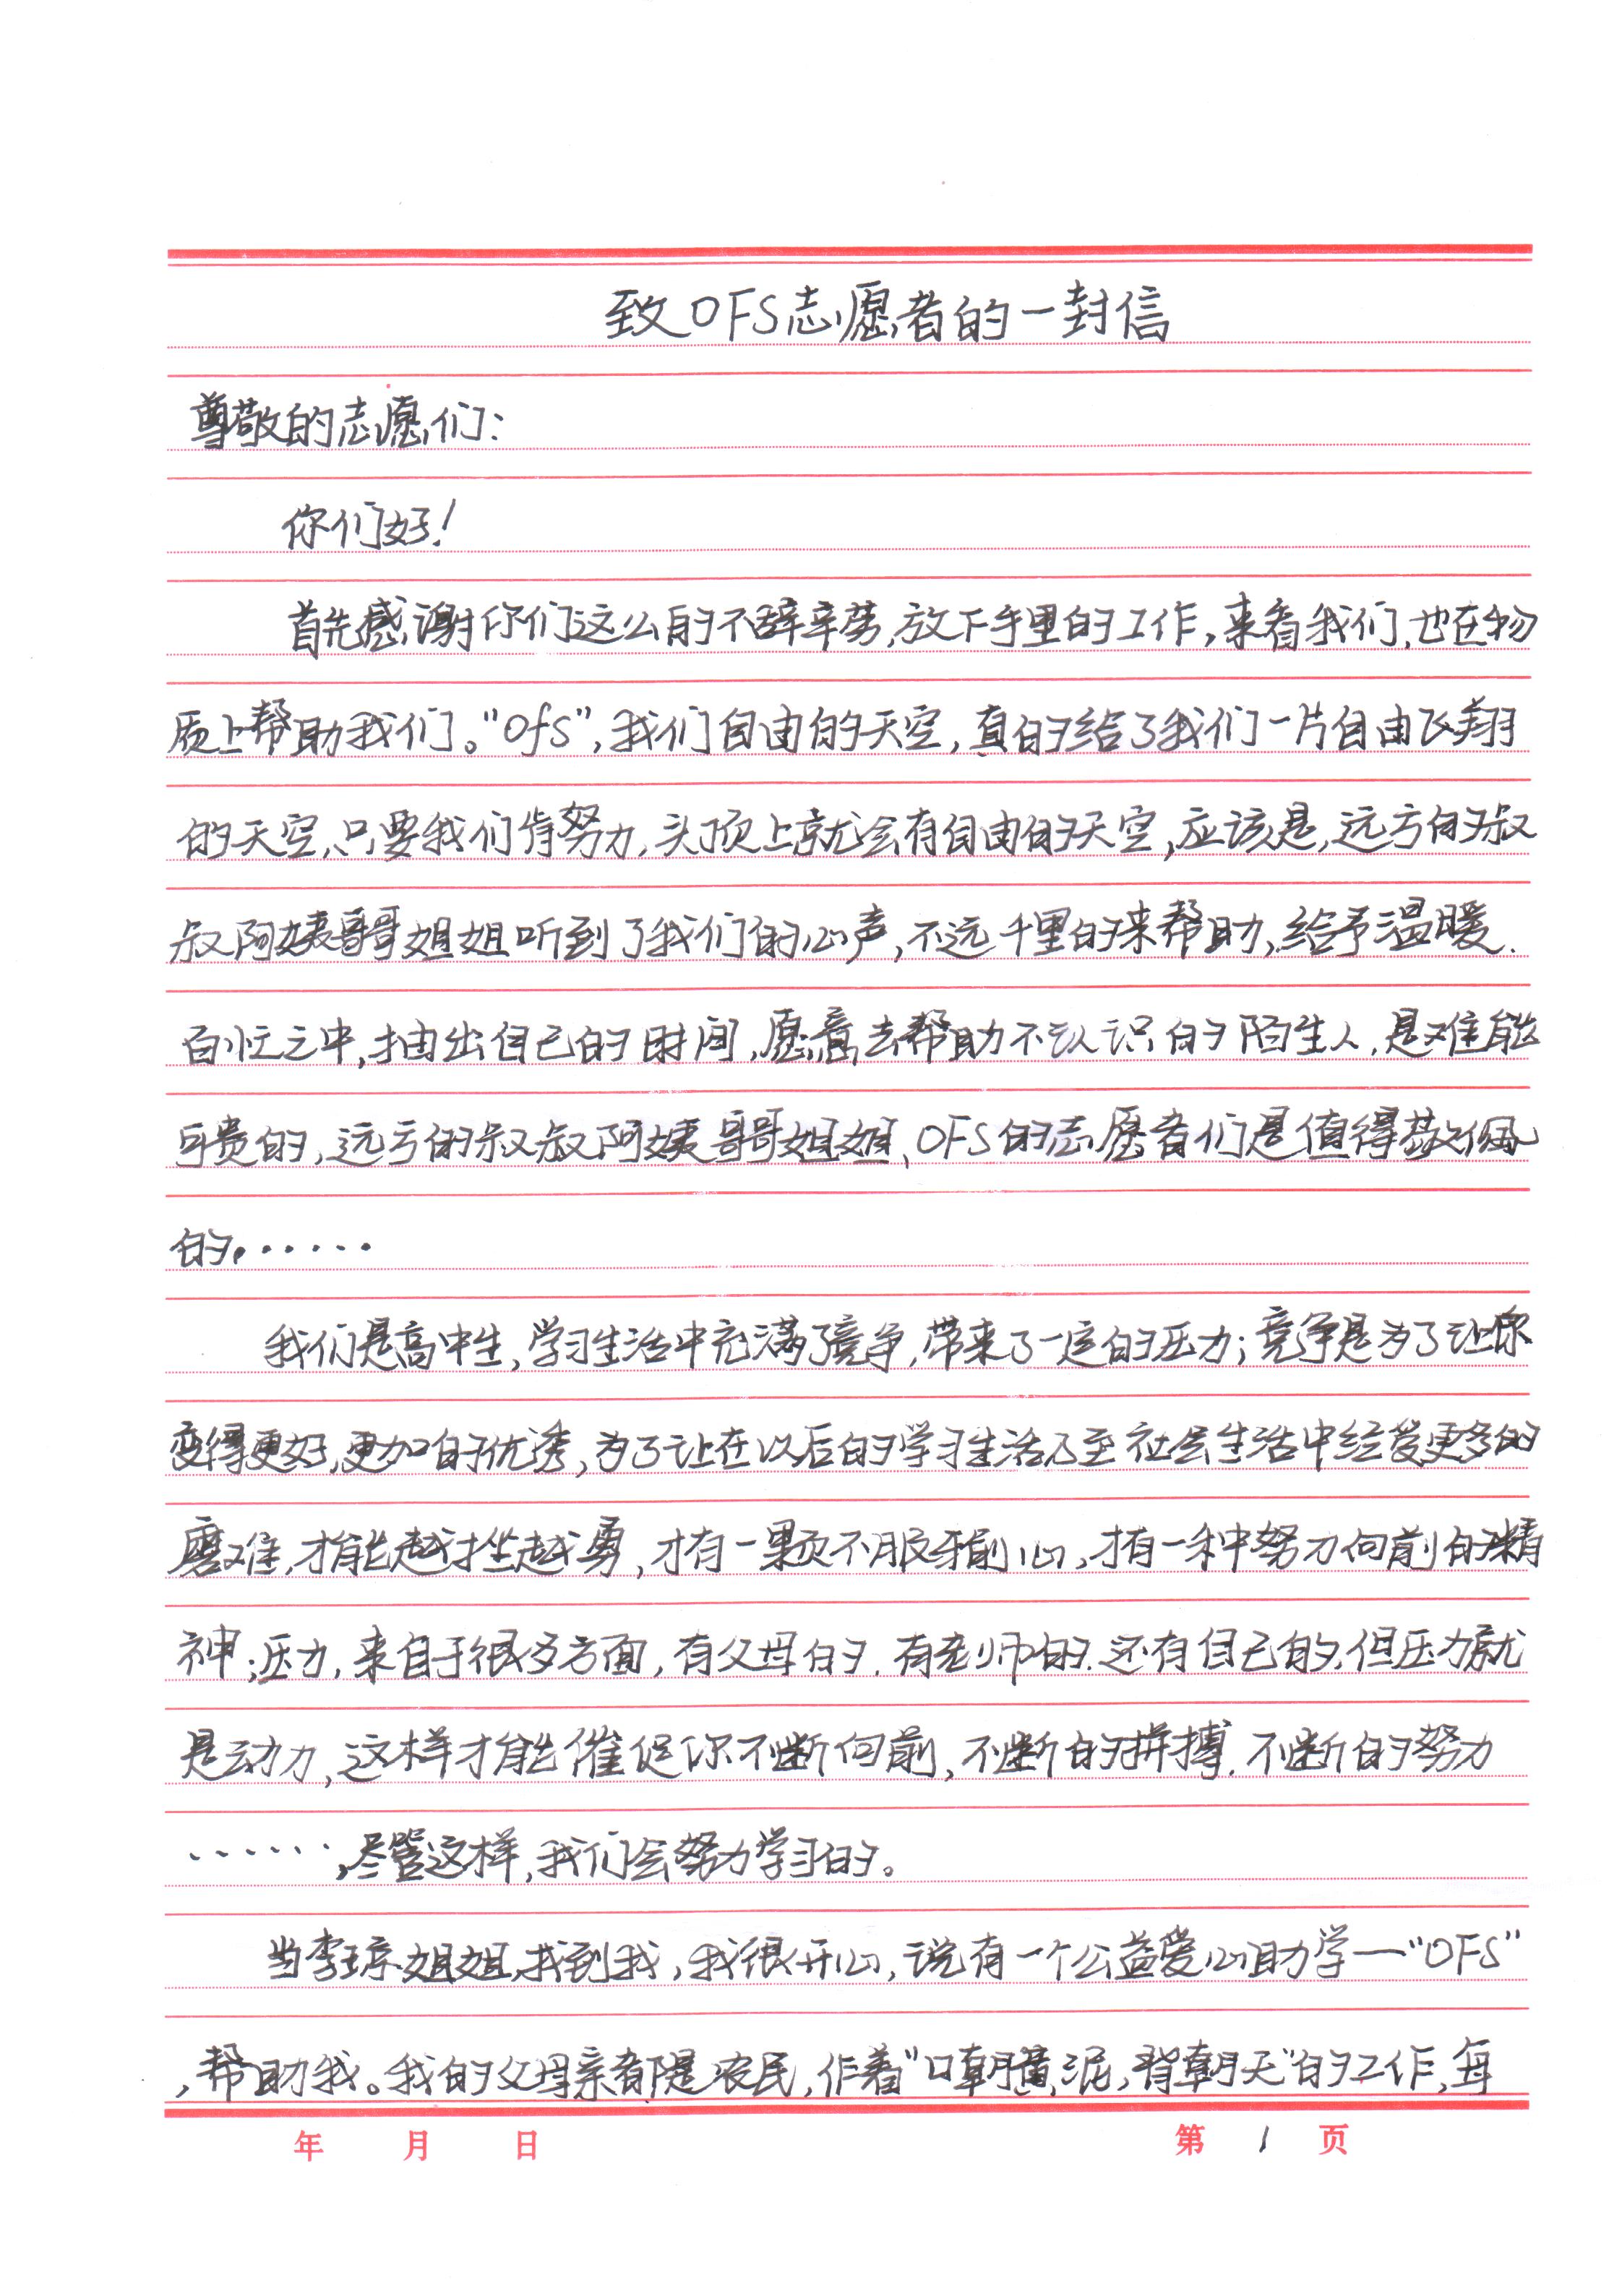 致OFS志愿者的一封信
尊敬的志愿们:
你们好!
首先感谢你们这么的不辞辛劳,放下手里的工作,来看我们,也在物
质上帮助我们。"OfS",我们自由的天空,真的给了我们一片自由飞翔
的天空,只要我们肯努力,头顶上就会有自由的天空,应该是,远方的叔
叔阿姨哥哥姐姐听到了我们的心声,不远千里的来帮助,给予温暖.
百忙之中,抽出自己的时间,愿意去帮助不认识的陌生人,是难能
可贵的,远方的叔叔阿姨哥哥姐姐,OFS的志愿者们是值得敬佩
的,......
我们是高中生,学习生活中充满了竞争,带来了一定的压力;竞争是为了让你
变得更好,更加的优秀,为了让在以后的学习生活乃至社会生活中经受更多的
磨难,才能越挫越勇,才有一颗不服输心,才有一种努力向前的精
神;压力,来自于很多方面,有父母的,有老师的,还有自己的,但压力就
是动力,这样才能催促你不断向前,不断的拼搏,不断的努力
......,尽管这样,我们会努力学习的。
当李琼姐姐,找到我,我很开心,说有一个公益爱心助学—"OFS"
,帮助我。我的父母亲都是农民,作着"口朝黄泥,背朝天"的工作,每
年 月 日 第 1 页